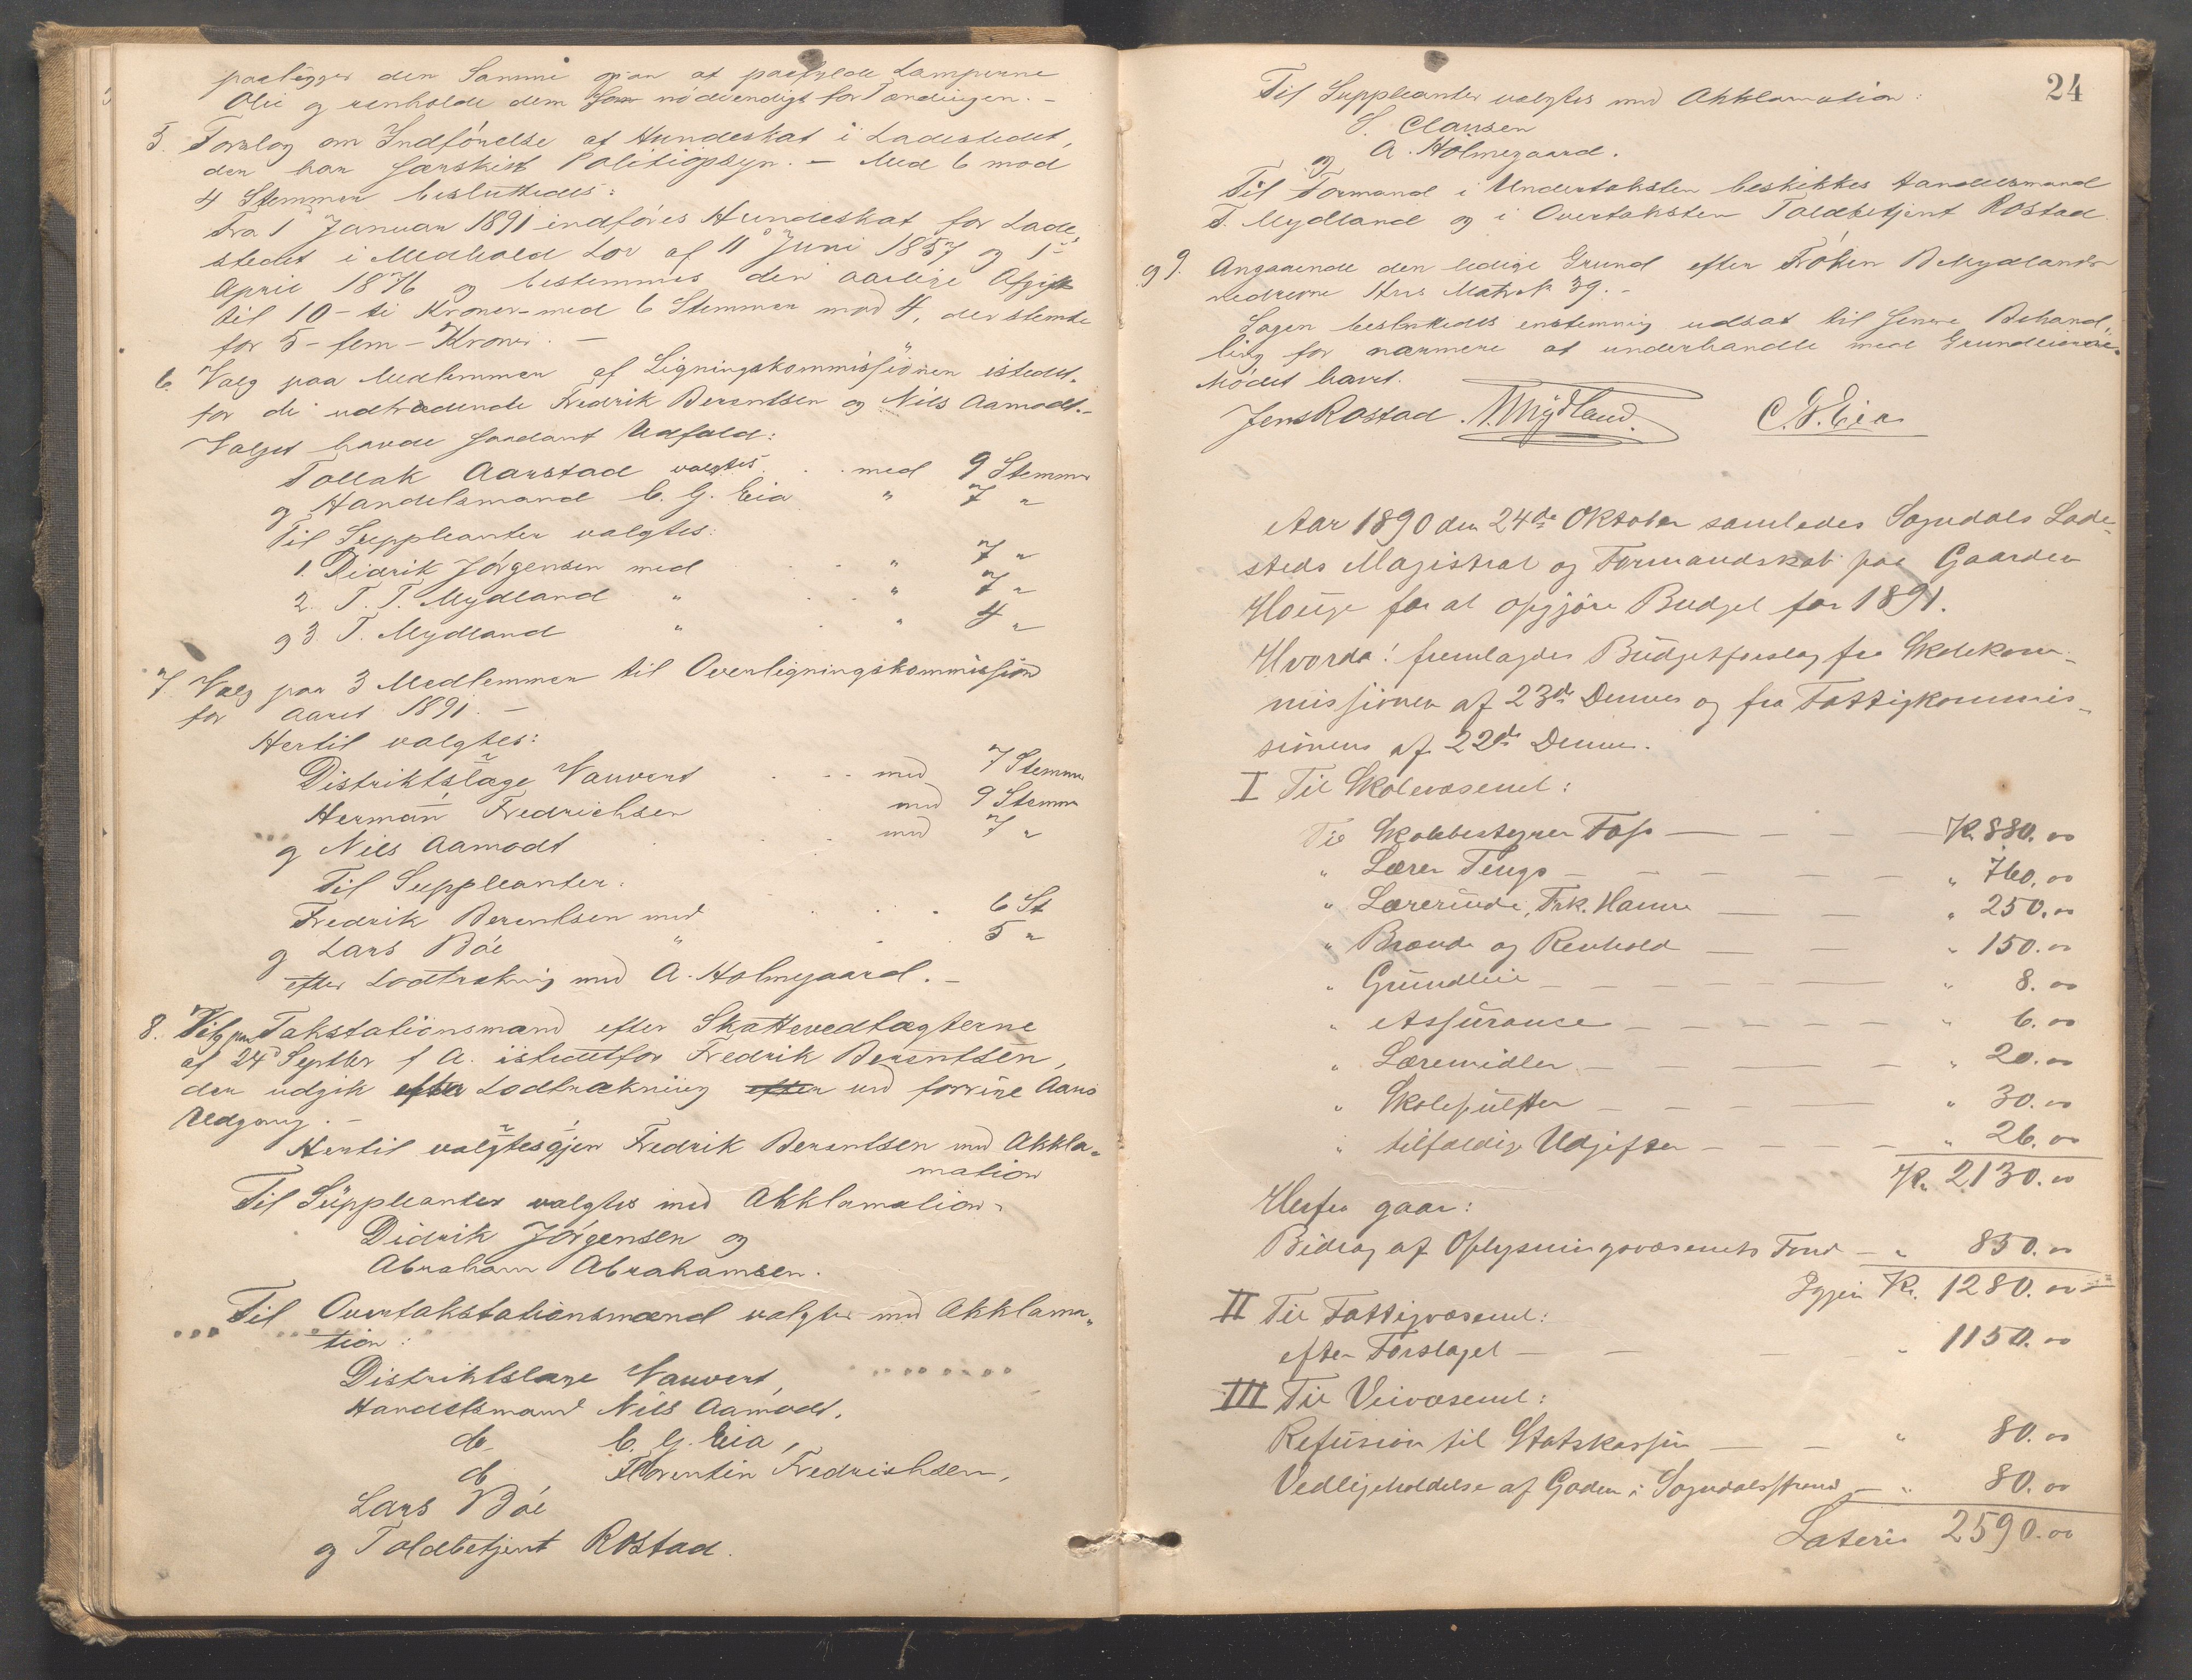 paalægger den Samme ogsaa at paafylde Lamperne
Olie og renholde dem som nödvendigt for Tændingen. –
5. Forslag om Indförelse af Hundeskat i Ladestedet,
der har særskilt Politiopsyn. – Med 6 mod
4 Stemmer besluttedes:
Fra 1 Januar 1891 indföres Hundeskat for Lade,
stedet i Medhold Lov af 11 Juni 1857 og 1
April 1876 og bestemmes den aarlige Afgift
til 10 – ti Kroner – med 6 Stemmer mod 4, der stemte
for 5 – fem – Kroner. –
6. Valg paa Medlemmer af Ligningskommissionen istedet-
for de udtrædende Fredrik Berentsen og Nils Aamodt. –
Valget havde saadant Udfald:
Tollak Aarstad valgtes . . med 9 Stemmer
og Handelsmand C. G. Eia " 7 "
Til Suppleanter valgtes:
1. Didrik Jörgensen med . . " 7 "
2. T. T. Mydland " . . " 7 "
og 3. T. Mydland " . " 4 "
7. Valg paa 3 Medlemmer til Overligningskommission
for Aaret 1891. –
Hertil valgtes:
Distriktslæge Vauvert . . . med 7 Stemmer
Herman Fredrichsen . med 9 Stemmer
og Nils Aamodt . . . med 7 "
Til Suppleanter:
Fredrik Berentsen med . . . 6 St
og Lars Böe " . . 5 "
efter Lodtrækning med A. Holmegaard. –
8. Valg paa Takstationsmand efter Skattevedtægterne
af 24 Septbr f A. istedetfor Fredrik Berentsen,
der udgik efter Lodtrækning efter ved forrige Aars
Udgang. –
Hertil valgtes igjen Fredrik Berentsen med Akkla-
mation
Til Suppleanter valgtes med Akklamation
Didrik Jörgensen og
Abraham Abrahamsen.
Til Overtakstationsmænd valgtes med Akklama,
tion:
Distriktslæge Vauvert,
Handelsmand Nils Aamodt,
do C. G. Eia,
do Florentin Fredrichsen,
Lars Böe
og Toldbetjent Rostad.
24
Til Suppleanter valgtes med Akklamation:
S. Clausen
og A. Holmegaard.
Til Formand i Undertaksten beskikkes Handelsmand
T. Mydland og i Overtaksten Toldbetjent Rostad
og 9. Angaaende den ledige Grund efter Fröken B Mydlands
nedrevne Hus Matr. No 39. –
Sagen besluttedes enstemmig udsat til senere Behand,
ling for nærmere at underhandle med Grundeieren.
Mödet hævet.
Jens Rostad. T. Mydland. C. G. Eia
Aar 1890 den 24de Oktober samledes Sogndals Lade-
steds Magistrat og Formandskab paa Gaarden
Houge for at opgjöre Budget for 1891.
Hvorda! fremlagdes Budgetforslag fra Skolekom-
missionen af 23de Dennes og fra Fattigkommis-
sionens af 22de Dennes.
I Til Skolevæsenet:
Til Skolebestyrer Foss – – – – Kr 880.00
" Lærer Tengs – – – – – " 760.00
" Lærerinde, Frk. Hanne – – – " 250.00
" Brænde og Renhold – – – " 150.00
" Grundleie – – – – – " 8.00
" Assurance – – – – – " 6.00
" Læremidler – – – – – " 20.00
" Skolepulter – – – – " 30.00
" tilfældige Udgifter – – – – " 26.00
Kr 2130.00
Herfra gaar:
Bidrag af Oplysningsvæsenets Fond – " 850.00
Igjen Kr. 1280.00
II Til Fattigvæsenet:
efter Forslaget – – – " 1150.00
III Til Veivæsenet:
Refusion til Statskassen – – " 80.00
Vedligeholdelse af Gaden i Sogndalsstrand – " 80.00
Lateris 2590.00